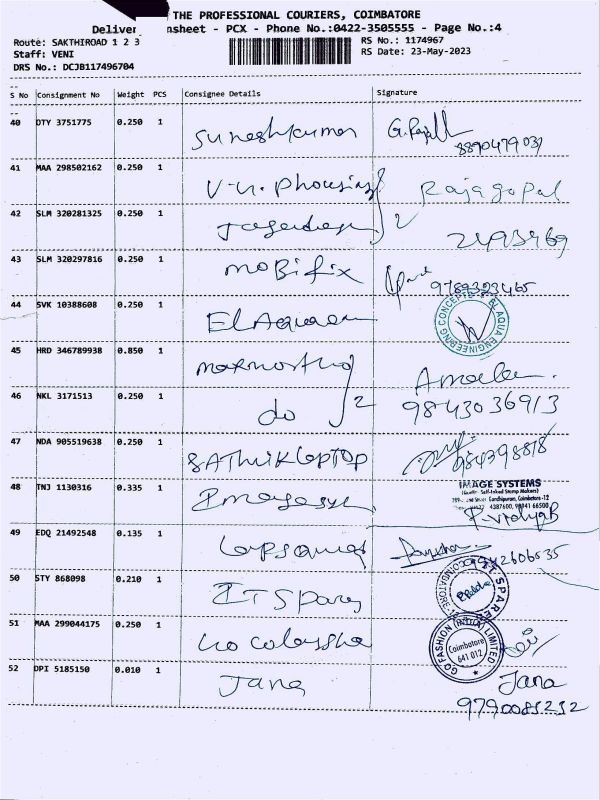 THE PROFESSIONAL COURIERS, COIMBATORE
Deliver nsheet - PCX - Phone No.:0422-3505555 - Page No.:4
Route: SAKTHIROAD 1 2 3
RS No.: 1174967
Staff: VENI
RS Date: 23-May-2023
DRS No.: DCJB117496704
S No Consignment No Weight PCS Consignee Details Signature
40 DTY 3751775 0.250 1 Sureshkumar
41 MAA 298502162 0.250 1 Rajagopal
42 SLM 320281325 0.250 1 2
2493469
43 SLM 320297816 0.250 1 Mobifix
9789323465
44 SVK 10388608 0.250 1 El Aquaa
AQUA ENGINEERING CONCEPTS
45 HRD 346789938 0.850 1
46 NKL 3171513 0.250 1 do 2 9843036913
47 NDA 905519638 0.250 1 SATHIK LAPTOP
48 TNJ 1130316 0.335 1 Imagesys
IMAGE SYSTEMS
Self-Inked Stamp Makers)
Gandhipuram, Coimbatore-12
4387600, 98941 66500
49 EDQ 21492548 0.135 1
50 STY 868098 0.210 1 IT Spares
IT SPARE
COIMBATORE
51 MAA 299044175 0.250 1
GO FASHION (INDIA) LIMITED
Coimbatore
641 012
52 DPI 5185150 0.010 1 Jana Jana
9790085252